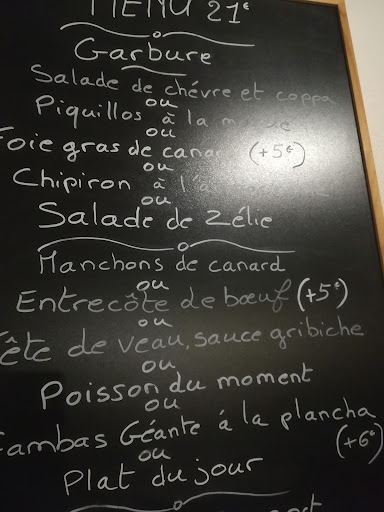 MENU 21€
Garbure
Salade de chévre et coppa
ou
Piquillos à la
ou
Foie gras de canard (+5€)
ou
Chipiron à l'a
ou
Salade de Zélie
Manchons de canard
ou
Entrecôte de bœuf (+5€)
ou
Tête de veau, sauce gribiche
ou
Poisson du moment
ou
Gambas Géante á la plancha
(+6€)
ou
Plat du jour